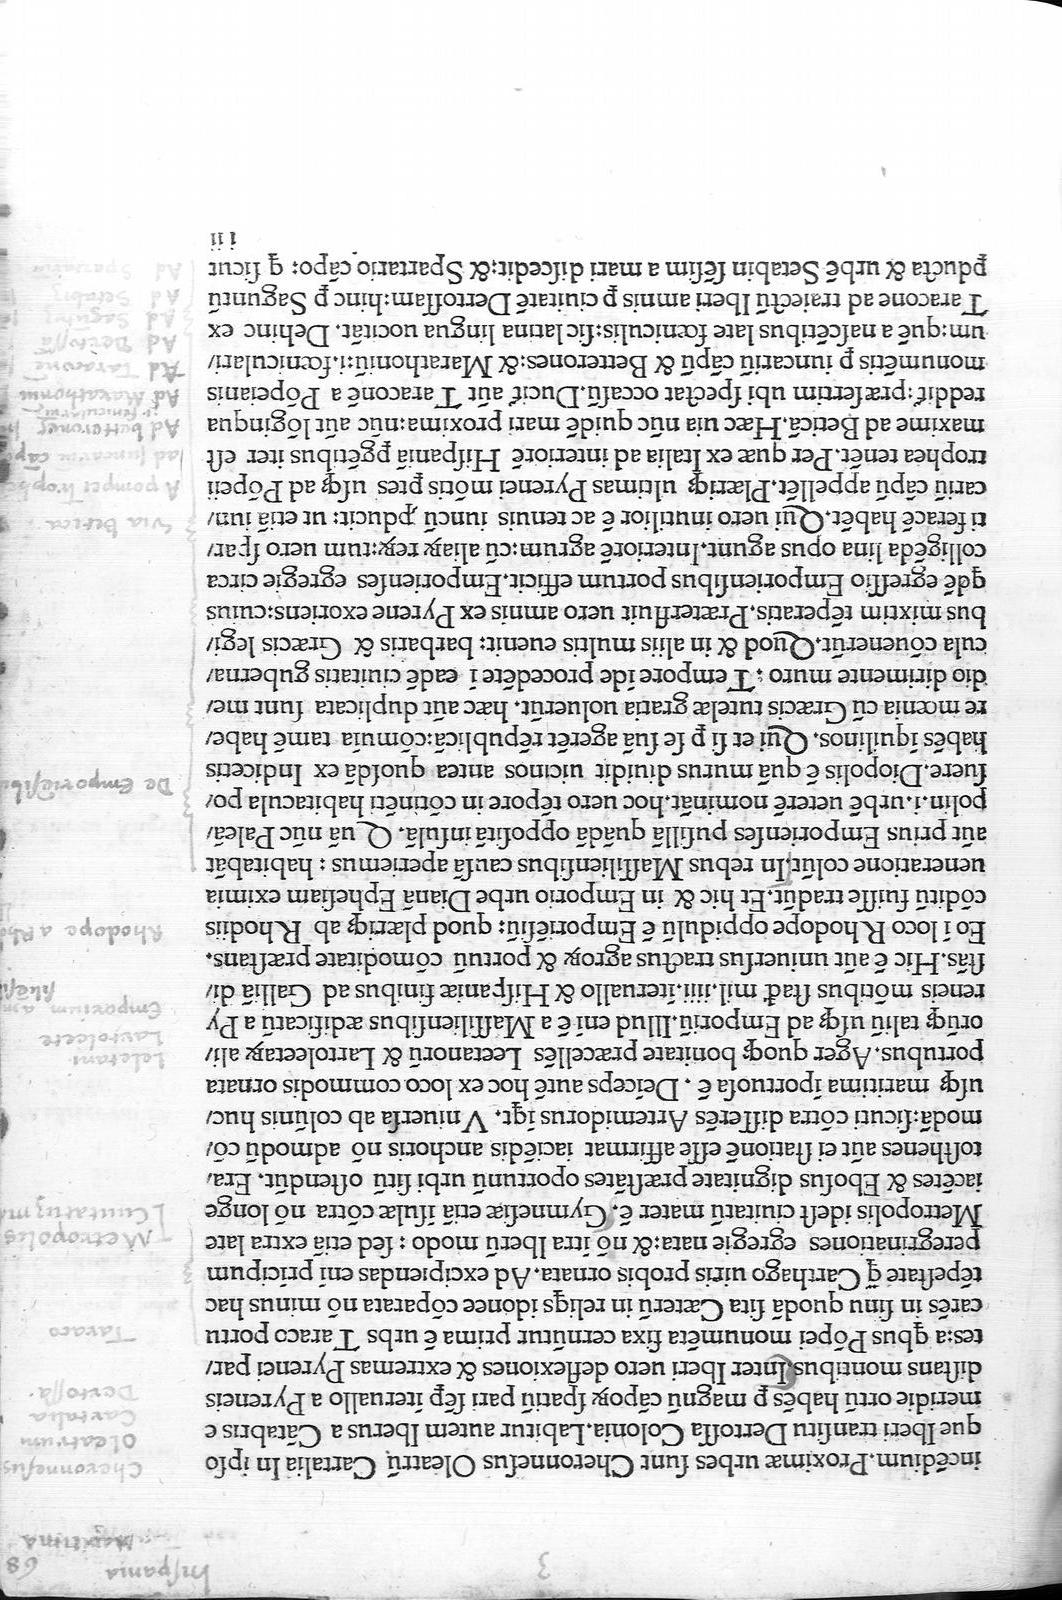 incēdium. Proximæ urbes ſunt Cherronneſus Oleatrū Cartalia In ipſo
que Iberi tranſitu Dertoſſa Colonia. Labitur autem Iberus a Cātabris e
meridie ortū habēs ꝑ magnū cāpoꝝ ſpatiū pari ſēꝑ īteruallo a Pyreneis
diſtans montibus Inter Iberi uero deflexiones & extremas Pyrenei par/
tes: a qbus Pōpei monumēta fixa cernūtur prima ē urbs Taraco portu
carēs in ſinu quodā ſita Cæterū in reliqs idonee cōparata nō minus hac
tēpeſtate q̄ Carthago uiris probis ornata. Ad excipiendas eni prīcipum
peregrinationes egregie nata: & nō itra Iberū modo: ſed etiā extra late
Metropolis ideſt ciuitatū mater ē. Gymneſiæ etiā īſulæ cōtra nō longe
iacētes & Eboſus dignitate præſtātes oportunū urbi ſitū oſtendūt. Era/
toſthenes aūt ei ſtationē eſſe affirmat iaciēdis anchoris nō admodū cō/
modā: ſicuti cōtra differēs Artemidorus īqt. Vniuerſa ab colūnis huc/
uſqꝫ maritima īportuoſa ē. Deīceps autē hoc ex loco commodis ornata
portubus. Ager quoqꝫ bonitate præcellēs Leetanorū & Lartoleetaꝝ ali/
orūqꝫ taliū uſqꝫ ad Emporiū. Illud eni ē a Maſſilienſibus ædificatū a Py
reneis mōtibus ſtad̄ mil. iiii. īteruallo & Hiſpaniæ finibus ad Galliā di/
ſtās. Hic ē aūt uniuerſus tractus agroꝝ & portuū cōmoditate præſtans.
Eo ī loco Rhodope oppidulū ē Emporiēſiū: quod plæriqꝫ ab Rhodiis
cōditū fuiſſe tradūt. Et hic & in Emporio urbe Dianā Epheſiam eximia
ueneratione colūt. In rebus Maſſilienſibus cauſā aperiemus: habitabāt
aūt prius Emporienſes puſillā quādā oppoſitā inſulā. Quā nūc Paleā/
polin. i. urbē ueterē nomināt. hoc uero tēpore in cōtinēti habitacula po/
ſuere. Diopolis ē quā murus diuidit uicinos antea quoſdā ex Indicetis
habēs īquilinos. Qui et ſi ꝑ ſe ſuā agerēt rēpublicā: cōmuia tamē habe/
re mœnia cū Græcis tutelæ gratia uoluerūt. hæc aūt duplicata ſunt me/
dio dirimente muro: Tempore īde procedēte ī eādē ciuitatis guberna/
cula cōuenerūt. Quod & in aliis multis euenit: barbaris & Græcis legi/
bus mixtim tēperatis. Præterfluit uero amnis ex Pyrene exoriens: cuius
qdē egreſſio Emporienſibus portum efficit. Emporienſes egregie circa
colligēda lina opus agunt. Interiorē agrum: cū aliaꝝ reꝝ: tum uero ſpar/
ti feracē habēt. Qui uero inutilior ē ac tenuis iuncū ꝓducit: ut etiā iun/
cariū cāpū appellēt. Plæriqꝫ ultimas Pyrenei mōtis ꝑtes uſqꝫ ad Pōpeii
trophea tenēt. Per quæ ex Italia ad interiorē Hiſpaniā ꝑgētibus iter eſt
maxime ad Beticā. Hæc uia nūc quidē mari proxima: nūc aūt lōginqua
reddit: præſertim ubi ſpectat occaſū. Ducit aūt Taraconē a Pōpeianis
monumētis ꝑ iuncariū cāpū & Betterones: & Marathoniū: i. fœnicular/
um: quē a naſcētibus late fœniculis: ſic latina lingua uocitāt. Dehinc ex
Taracone ad traiectū Iberi amnis ꝑ ciuitatē Dertoſſam: hinc ꝑ Saguntū
ꝓducta & urbē Setabin ſēſim a mari diſcedit: & Spartario cāpo: q ſicut
iii
Hiſpania
Maritima
68
3
Cherronneſus
Oleatrum
Cartalia
Dertoſſa.
Taraco
Metropolis
Leletani
Lartolcete
De Emporiēſib
Via Betica.
A pompei tropheo
Ad Marathonium
Ad Taraconē
Ad Dertoſſā
Ad Saguntū
Ad Setabin
Ad Spartariū